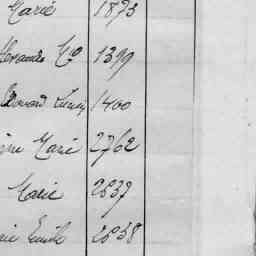 Marie 1873
Alexandre M° 1399
Edouard Lucien 1400
Marie 2762
Marie 2837
Emile 2838